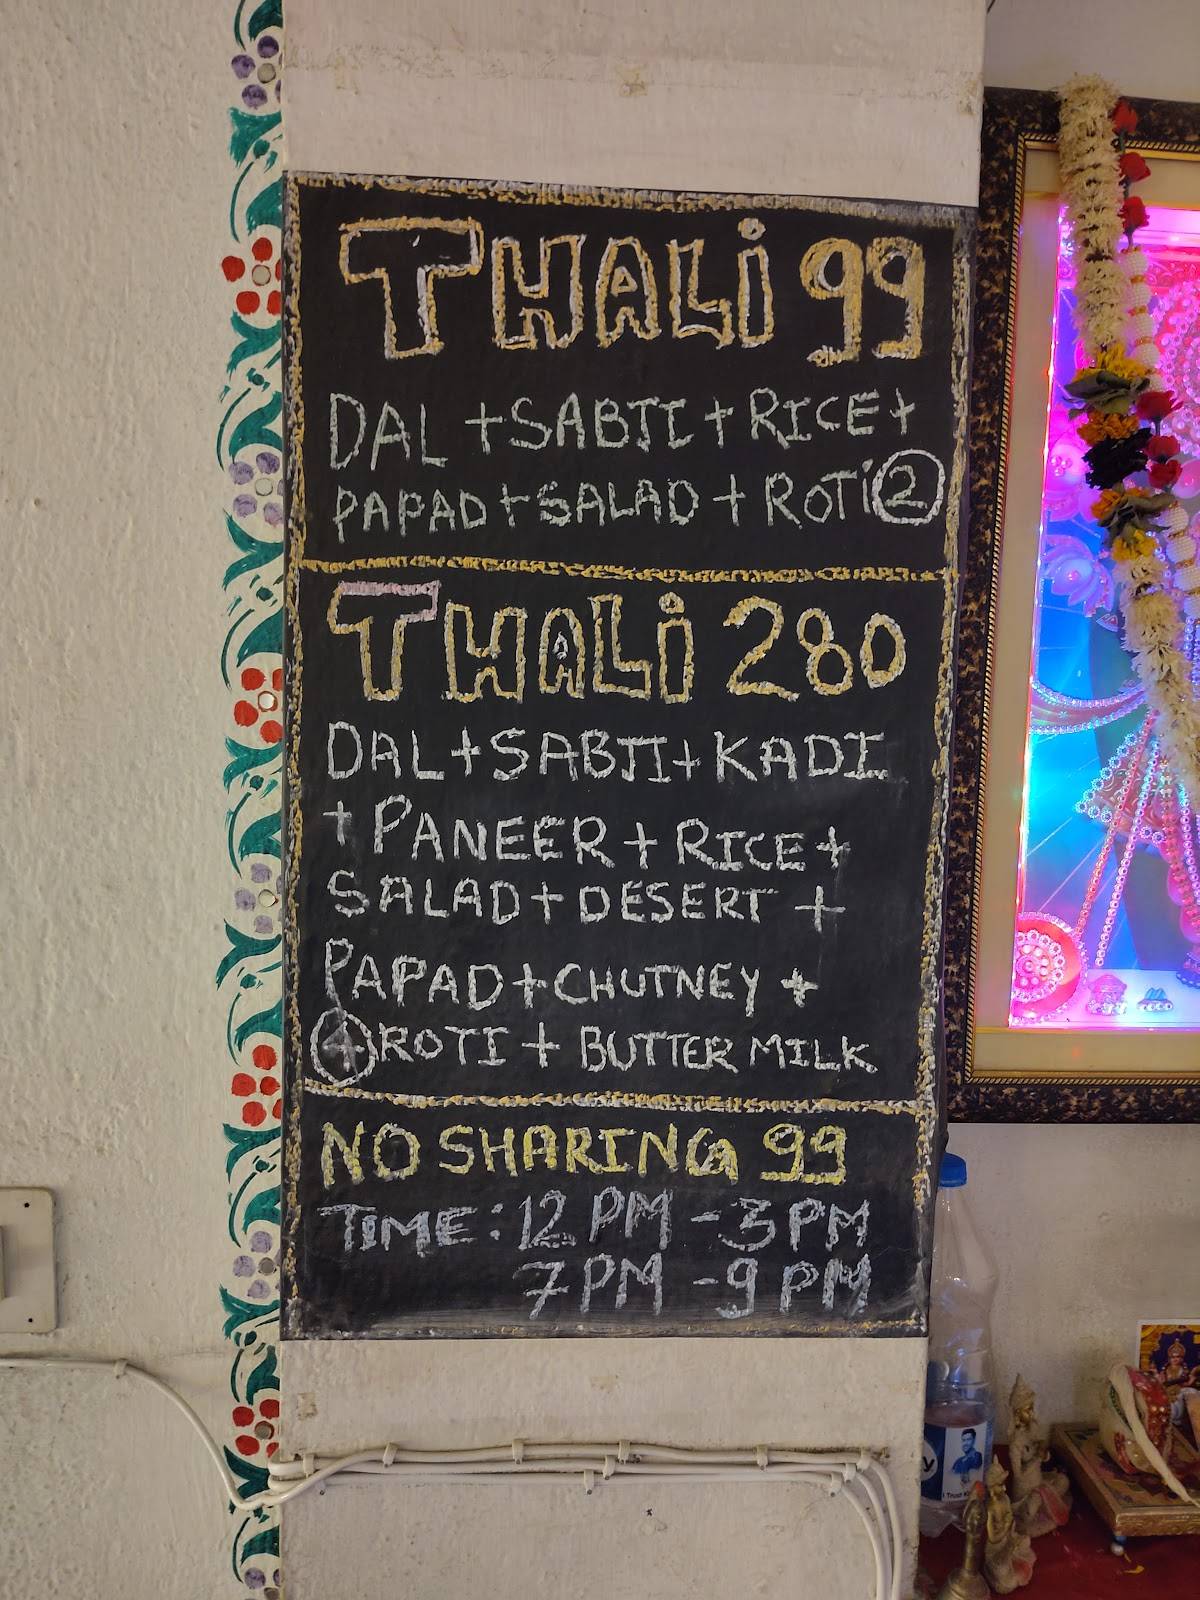 THALi 99
DAL + SABJI + RICE +
PAPAD + SALAD + ROTi 2
THALi 280
DAL + SABJI + KADI
+ PANEER + RICE +
SALAD + DESERT +
PAPAD + CHUTNEY +
4 ROTI + BUTTER MILK
NO SHARING 99
TIME : 12 PM - 3 PM
7 PM - 9 PM